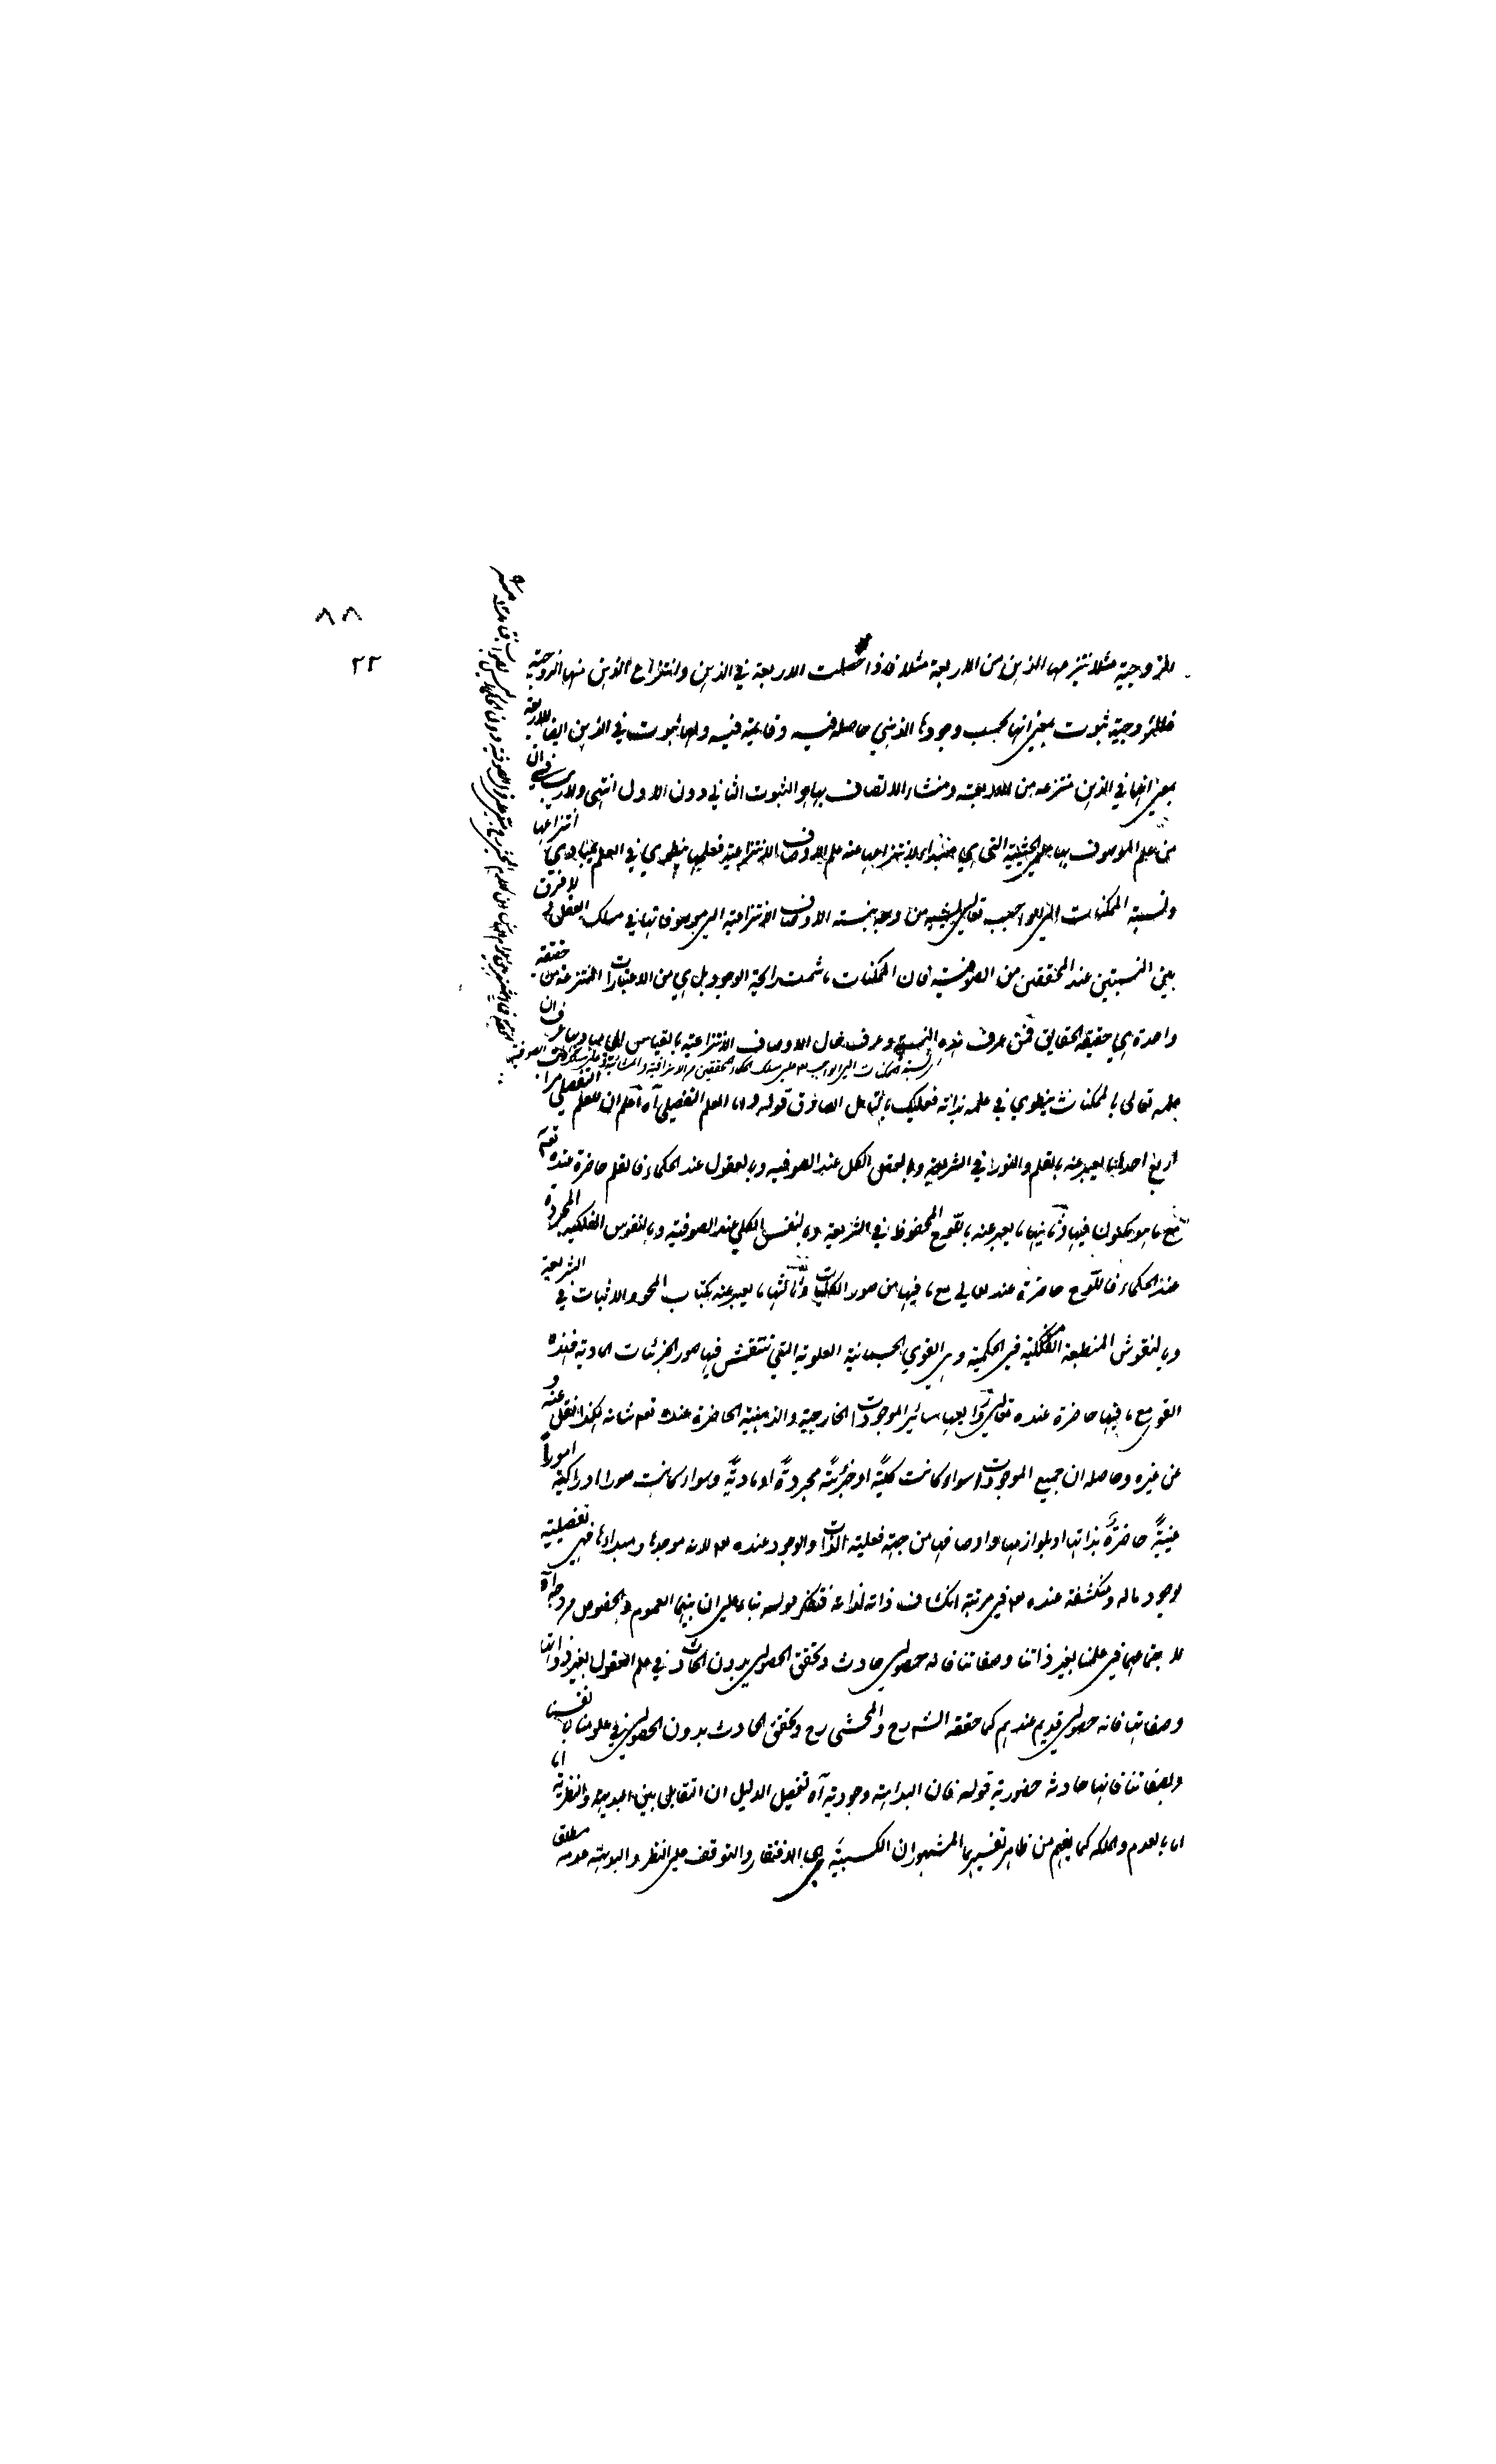 ٨٨
٢٢
للزوجية مثلا ينتزعها الذهن من الاربعة مثلا فاذا حصلت الاربعة في الذهن وانتزاع الذهن منها الزوجية
فللزوجية ثبوت بمعني انها بحسب وجودها الذهني حاصلة فيه وقائمة فيه ولها ثبوت في الذهن ايضا للاربعة
بمعني انها في الذهن منتزعه من الاربعة ومنشاء الاتصاف بها هو الثبوت الثاني دون الاول انتهي ولا ريب في ان
من علم الموصوف بها علي الحيثية التي هي مبداء لانتزاعها عنه علم الاوصاف الانتزاعية فعلمها ينطوي في العلم بمبادي انتزاعها
ونسبة الممكنات الي الواجب تعالي شبيه من وجه بنسبة الاوصاف الانتزاعية الي موصوفاتها في مسلك العقل لا فرق
بين النسبتين عند المحققين من الصوفية فان الممكنات ما شمت رايحة الوجود بل هي من الاعتبارات المنتزعة من حقيقة
واحدة هي حقيقة الحقايق فمن عرف هذه النسبة وعرف حال الاوصاف الانتزاعية بالقياس الي مباديها عرف ان
علمه تعالي بالممكنات ينطوي في علمه بذاته فعليك بالتامل الصادق قوله واما العلم التفصيلي آه اعلم ان للعلم التفصيلي مراتب
اربع احدها ما يعبر عنه بالقلم والنور في الشريعة وبالعقل الكل عند الصوفيه وبالعقول عند الحكماء فالقلم حاضرة عنده تعه
مع ما هو مكنون فيها وثانيها ما يعبر عنه باللوح المحفوظ في الشريعة وبالنفس الكلي عند الصوفية وبالنفوس الفلكيه المجردة
عند الحكماء فاللوح حاضرة عنده تعالي مع ما فيها من صور الكليات وثالثها ما يعبر عنه بكتاب المحو والاثبات في الشريعة
وبالنقوش المنطبعة الفلكية في الحكمة وهي القوي الجسمانية العلوية التي تنتقش فيها صور الجزئيات المادية فهذه
القوي مع ما فيها حاضرة عنده تعالي ورابعها سائر الموجودات الخارجية والذهنية الحاضرة عنده تعه شانه هكذا نقل عنه و
عن غيره وحاصله ان جميع الموجودات سواء كانت كليةً او جزئيةً مجردةً او ماديةً وسواء كانت صورا ادراكية اموراً
عينيةً حاضرةً بذاتها او بلوازمها واوصافها من جهة فعلية الذات والوجود عنده تعه لانه موجدها ومبداءها فهي تفصيلية
لوجود ماله ومنكشفة عنده تعه في مرتبة انكشاف ذاته لذاته فتفكر قوله بناء علي ان بينهما العموم والخصوص من وجه آه
لاجتماعهما في علمنا بغير ذاتنا وصفاتنا فانه حصولي حادث وتحقق الحصولي بدون الحادث في علم العقول بغير ذواتها
وصفاتها فانه حصولي قديم عندهم كما حققه الشارح والمحشي رح وتحقق الحادث بدون الحصولي في علومنا بانفسنا
وبصفاتنا فانها حادثة حضورية قوله فان البداهة وجودية آه تفصيل الدليل ان التقابل بين البديهة والنظرية اما
اما بالعدم والملكه كما يفهم من ظاهر تفسيرها المشهور ان الكسبية هي الافتقار والتوقف علي النظر والبداهة عدمه مطلق